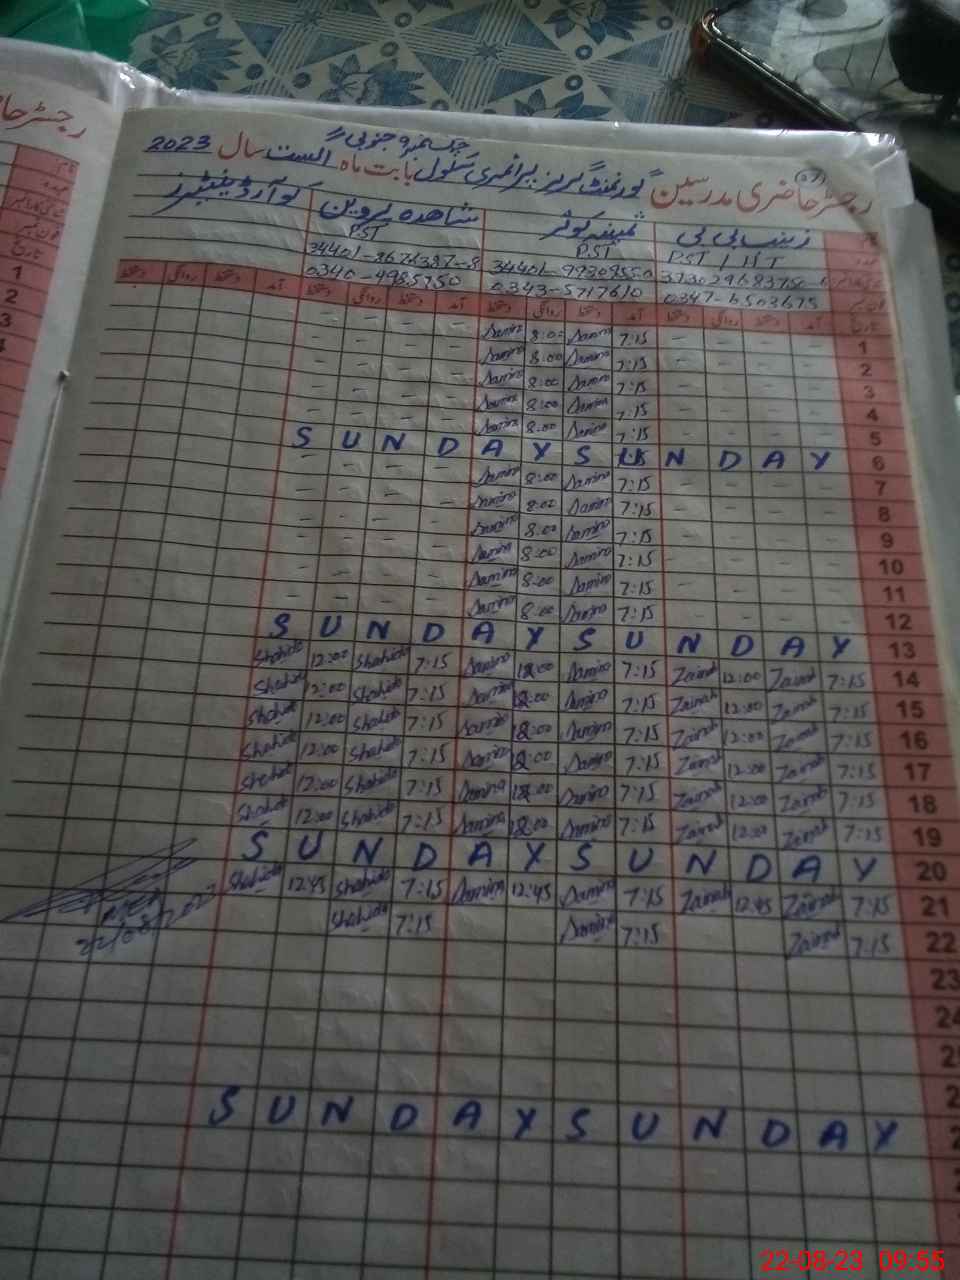 رجسٹر حاضری مدرسین گورنمنٹ گرلز پرائمری سکول بابت ماہ اگست سال 2023
زینب بی بی ثمینہ کوثر شاھدہ پروین
PST PST
34401-
0347-6503675 0343-5717610 0340-4985750
تاریخ آمد دستخط روانگی دستخط آمد دستخط روانگی دستخط آمد دستخط روانگی دستخط آمد دستخط روانگی دستخط
- - - - Samina 8:00 Samina 7:15 - - - - 1
- - - - Samina 8:00 Samina 7:15 - - - - 2
- - - - Samina 8:00 Samina 7:15 - - - - 3
- - - - Samina 8:00 Samina 7:15 - - - - 4
- - - - Samina 8:00 Samina 7:15 - - - - 5
S U N D A Y S U N D A Y 6
- - - - Samina 8:00 Samina 7:15 - - - - 7
- - - - Samina 8:00 Samina 7:15 - - - - 8
- - - - Samina 8:00 Samina 7:15 - - - - 9
- - - - Samina 8:00 Samina 7:15 - - - - 10
- - - - Samina 8:00 Samina 7:15 - - - - 11
- - - - Samina 8:00 Samina 7:15 - - - - 12
S U N D A Y S U N D A Y 13
Shahida 12:00 Shahida 7:15 Samina 12:00 Samina 7:15 Zainab 12:00 Zainab 7:15 14
Shahida 12:00 Shahida 7:15 Samina 12:00 Samina 7:15 Zainab 12:00 Zainab 7:15 15
Shahida 12:00 Shahida 7:15 Samina 12:00 Samina 7:15 Zainab 12:00 Zainab 7:15 16
Shahida 12:00 Shahida 7:15 Samina 12:00 Samina 7:15 Zainab 12:00 Zainab 7:15 17
Shahida 12:00 Shahida 7:15 Samina 12:00 Samina 7:15 Zainab 12:00 Zainab 7:15 18
Shahida 12:00 Shahida 7:15 Samina 12:00 Samina 7:15 Zainab 12:00 Zainab 7:15 19
S U N D A Y S U N D A Y 20
Shahida 12:45 Shahida 7:15 Samina 12:45 Samina 7:15 Zainab 12:45 Zainab 7:15 21
Shahida 7:15 Samina 7:15 Zainab 7:15 22
22/08/2023
23
S U N D A Y S U N D A Y
رجسٹر
1
2
3
22-08-23 09:55